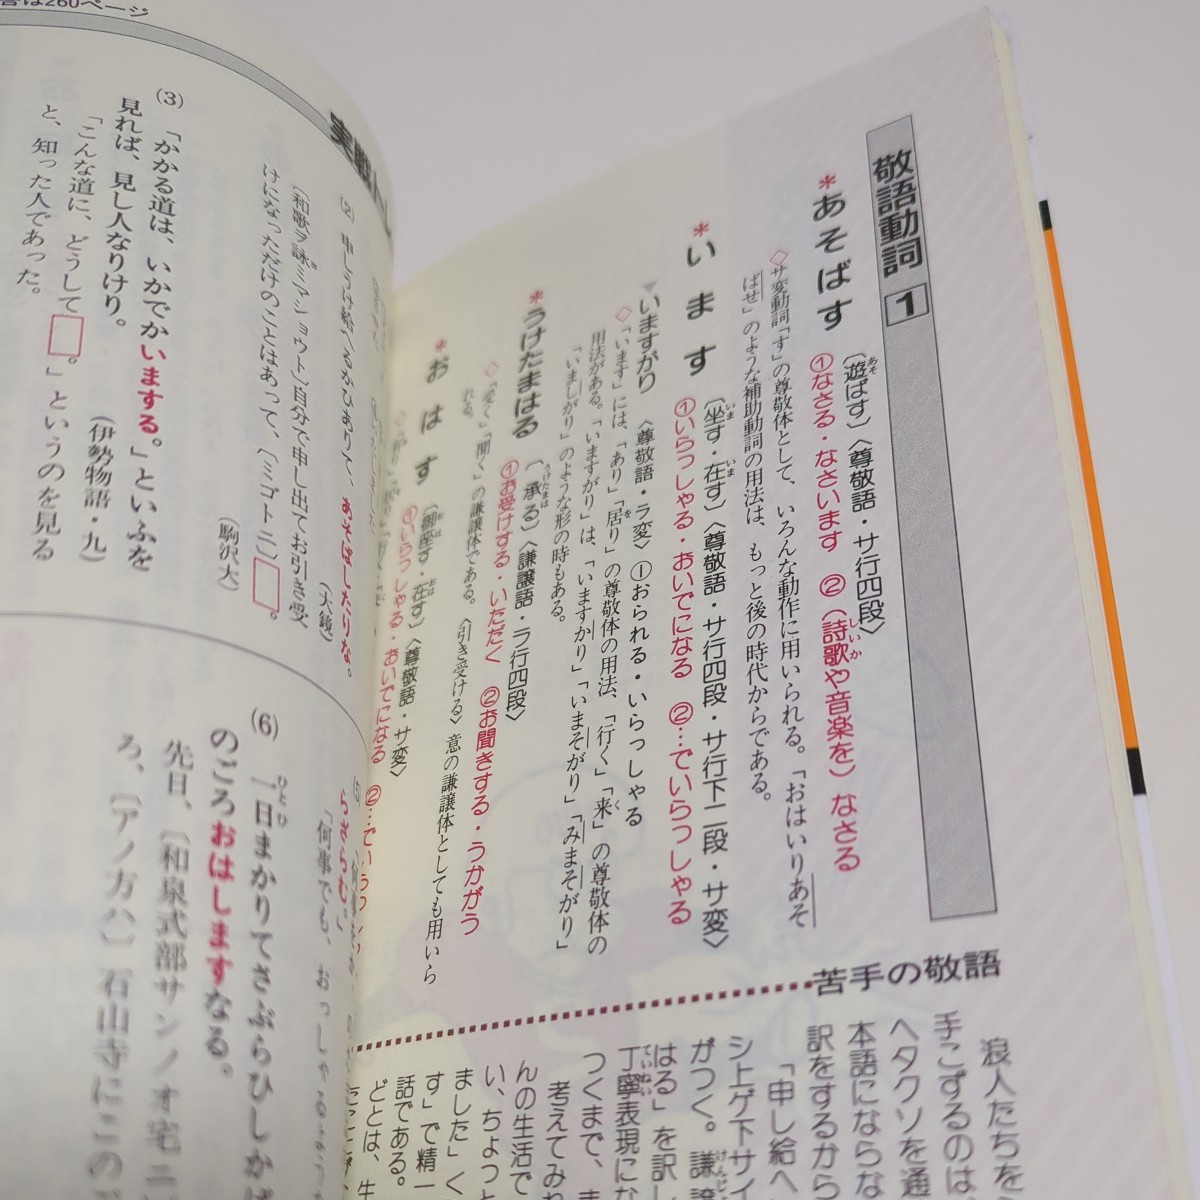 敬語動詞 1
*あそばす
〔遊ばす〕〈尊敬語・サ行四段〉
①なさる・なさいます ②(詩歌や音楽を)なさる
◇サ変動詞「す」の尊敬体として、いろんな動作に用いられる。「おはいりあそ
ばせ」のような補助動詞の用法は、もっと後の時代からである。
*います
〔坐す・在す〕〈尊敬語・サ行四段・サ行下二段・サ変〉
①いらっしゃる・おいでになる ②…でいらっしゃる
いますがり 〈尊敬語・ラ変〉①おられる・いらっしゃる
◇「います」には、「あり」「居り」の尊敬体の用法、「行く」「来」の尊敬体の
用法がある。「いますがり」は、「いますかり」「いまそがり」「みまそがり」
「いましがり」のような形の時もある。
*うけたまはる
〔承る〕〈謙譲語・ラ行四段〉
①お受けする・いただく ②お聞きする・うかがう
◇「受く」「聞く」の謙譲体である。〈引き受ける〉意の謙譲体としても用いら
れる。
*おはす
〔御座す・在す〕〈尊敬語・サ変〉
①いらっしゃる・おいでになる ②…でいらっしゃ
苦手の敬語
浪人たちを
手こずるのは、
ヘタクソを通
本語にならな
訳をするから
「申し給へ
シ上ゲ下サイ
がつく。謙譲
はる」を訳し
丁寧表現にな
つくまで、ま
考えてみれ
んの生活で
い、ちょっと
ました」く
す」で精一
話である。
どとは、生
答は260ページ
実戦
(2) 申しうけ給へるかひありて、あそばしたりな。
(大鏡)
〔和歌ヲ詠ミマショウト〕自分で申し出てお引き受
けになっただけのことはあって、〔ミゴトニ〕□。
(駒沢大)
(3) 「かかる道は、いかでかいまする。」といふを
見れば、見し人なりけり。
(伊勢物語・九)
「こんな道に、どうして□。」というのを見る
と、知った人であった。
(5)
らざらむ。」
「何事でも、おっしゃる
(6) 一日まかりてさぶらひしかば
のごろおはしますなる。
先日、〔和泉式部サンノオ宅ニ
ろ、〔アノ方ハ〕石山寺にこの